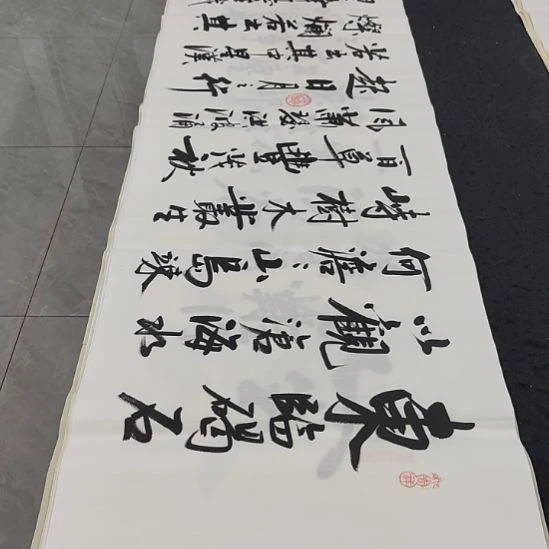 東臨碣石
以觀滄海水
何澹〻山島竦
峙樹木叢生
百草豐茂秋
風蕭瑟洪波涌
起日月之行
若出其中星漢
燦爛若出其